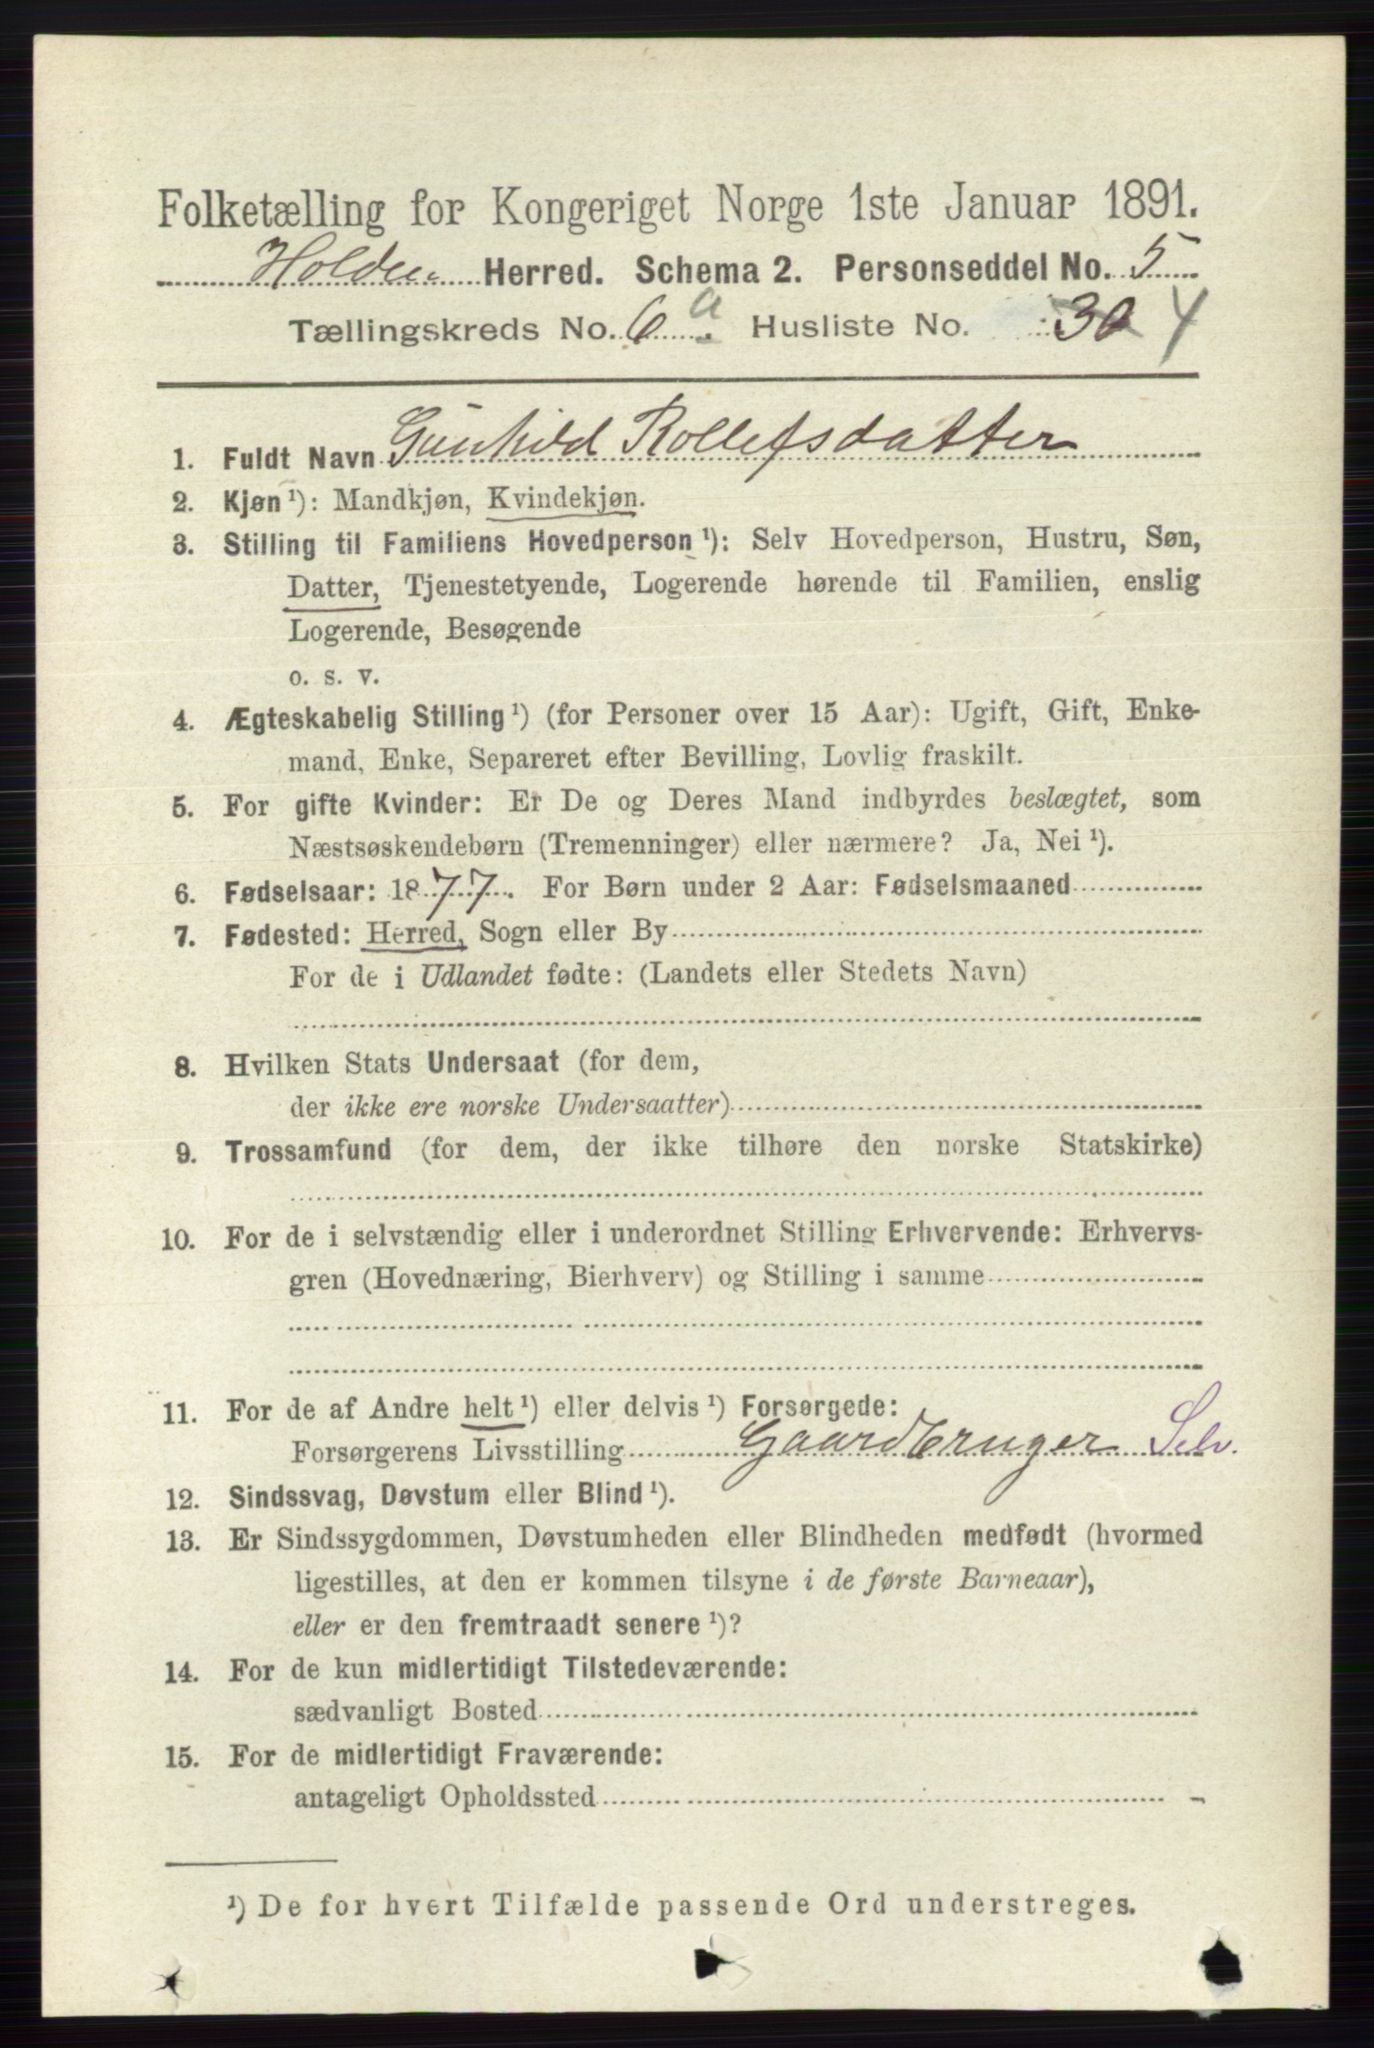 Folketælling for Kongeriget Norge 1ste Januar 1891.
Holden Herred. Schema 2. Personseddel No. 5
Tællingskreds No. 6 a. Husliste No. 30 4
1. Fuldt Navn Gunhild Rollefsdatter
2. Kjøn ¹): Mandkjøn, Kvindekjøn.
3. Stilling til Familiens Hovedperson ¹): Selv Hovedperson, Hustru, Søn,
Datter, Tjenestetyende, Logerende hørende til Familien, enslig
Logerende, Besøgende
o. s. v.
4. Ægteskabelig Stilling ¹) (for Personer over 15 Aar): Ugift, Gift, Enke-
mand, Enke, Separeret efter Bevilling, Lovlig fraskilt.
5. For gifte Kvinder: Er De og Deres Mand indbyrdes beslægtet, som
Næstsøskendebørn (Tremenninger) eller nærmere? Ja, Nei ¹).
6. Fødselsaar: 1877. For Børn under 2 Aar: Fødselsmaaned
7. Fødested: Herred, Sogn eller By
For de i Udlandet fødte: (Landets eller Stedets Navn)
8. Hvilken Stats Undersaat (for dem,
der ikke ere norske Undersaatter)
9. Trossamfund (for dem, der ikke tilhøre den norske Statskirke)
10. For de i selvstændig eller i underordnet Stilling Erhvervende: Erhvervs-
gren (Hovednæring, Bierhverv) og Stilling i samme
11. For de af Andre helt ¹) eller delvis ¹) Forsørgede:
Forsørgerens Livsstilling Gaardbruger Selv.
12. Sindssvag, Døvstum eller Blind ¹).
13. Er Sindssygdommen, Døvstumheden eller Blindheden medfødt (hvormed
ligestilles, at den er kommen tilsyne i de første Barneaar),
eller er den fremtraadt senere ¹)?
14. For de kun midlertidigt Tilstedeværende:
sædvanligt Bosted
15. For de midlertidigt Fraværende:
antageligt Opholdssted
¹) De for hvert Tilfælde passende Ord understreges.